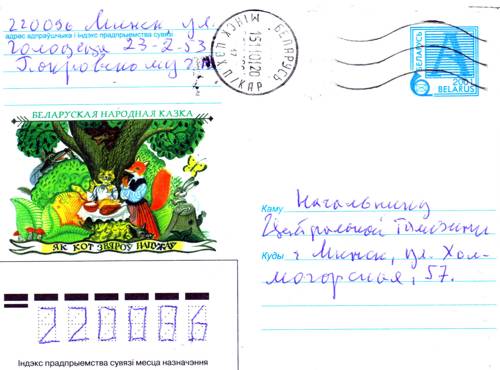 220036 Минск ул.
адрас адпраўшчыка і індэкс прадпрыемства сувязі
Голодеда 23-2-53
Покровскому
БЕЛАРУСКАЯ НАРОДНАЯ КАЗКА
ЯК КОТ ЗВЯРОЎ НАПУЖАЎ
МІНСК ПЖДП
БЕЛАРУСЬ
А
БЕЛАРУСЬ
2001
BELARUS
Каму Начальнику
Центральной Таможни
Куды г Минск, ул. Хол-
могорская, 57.
220086
Індэкс прадпрыемства сувязі месца назначэння